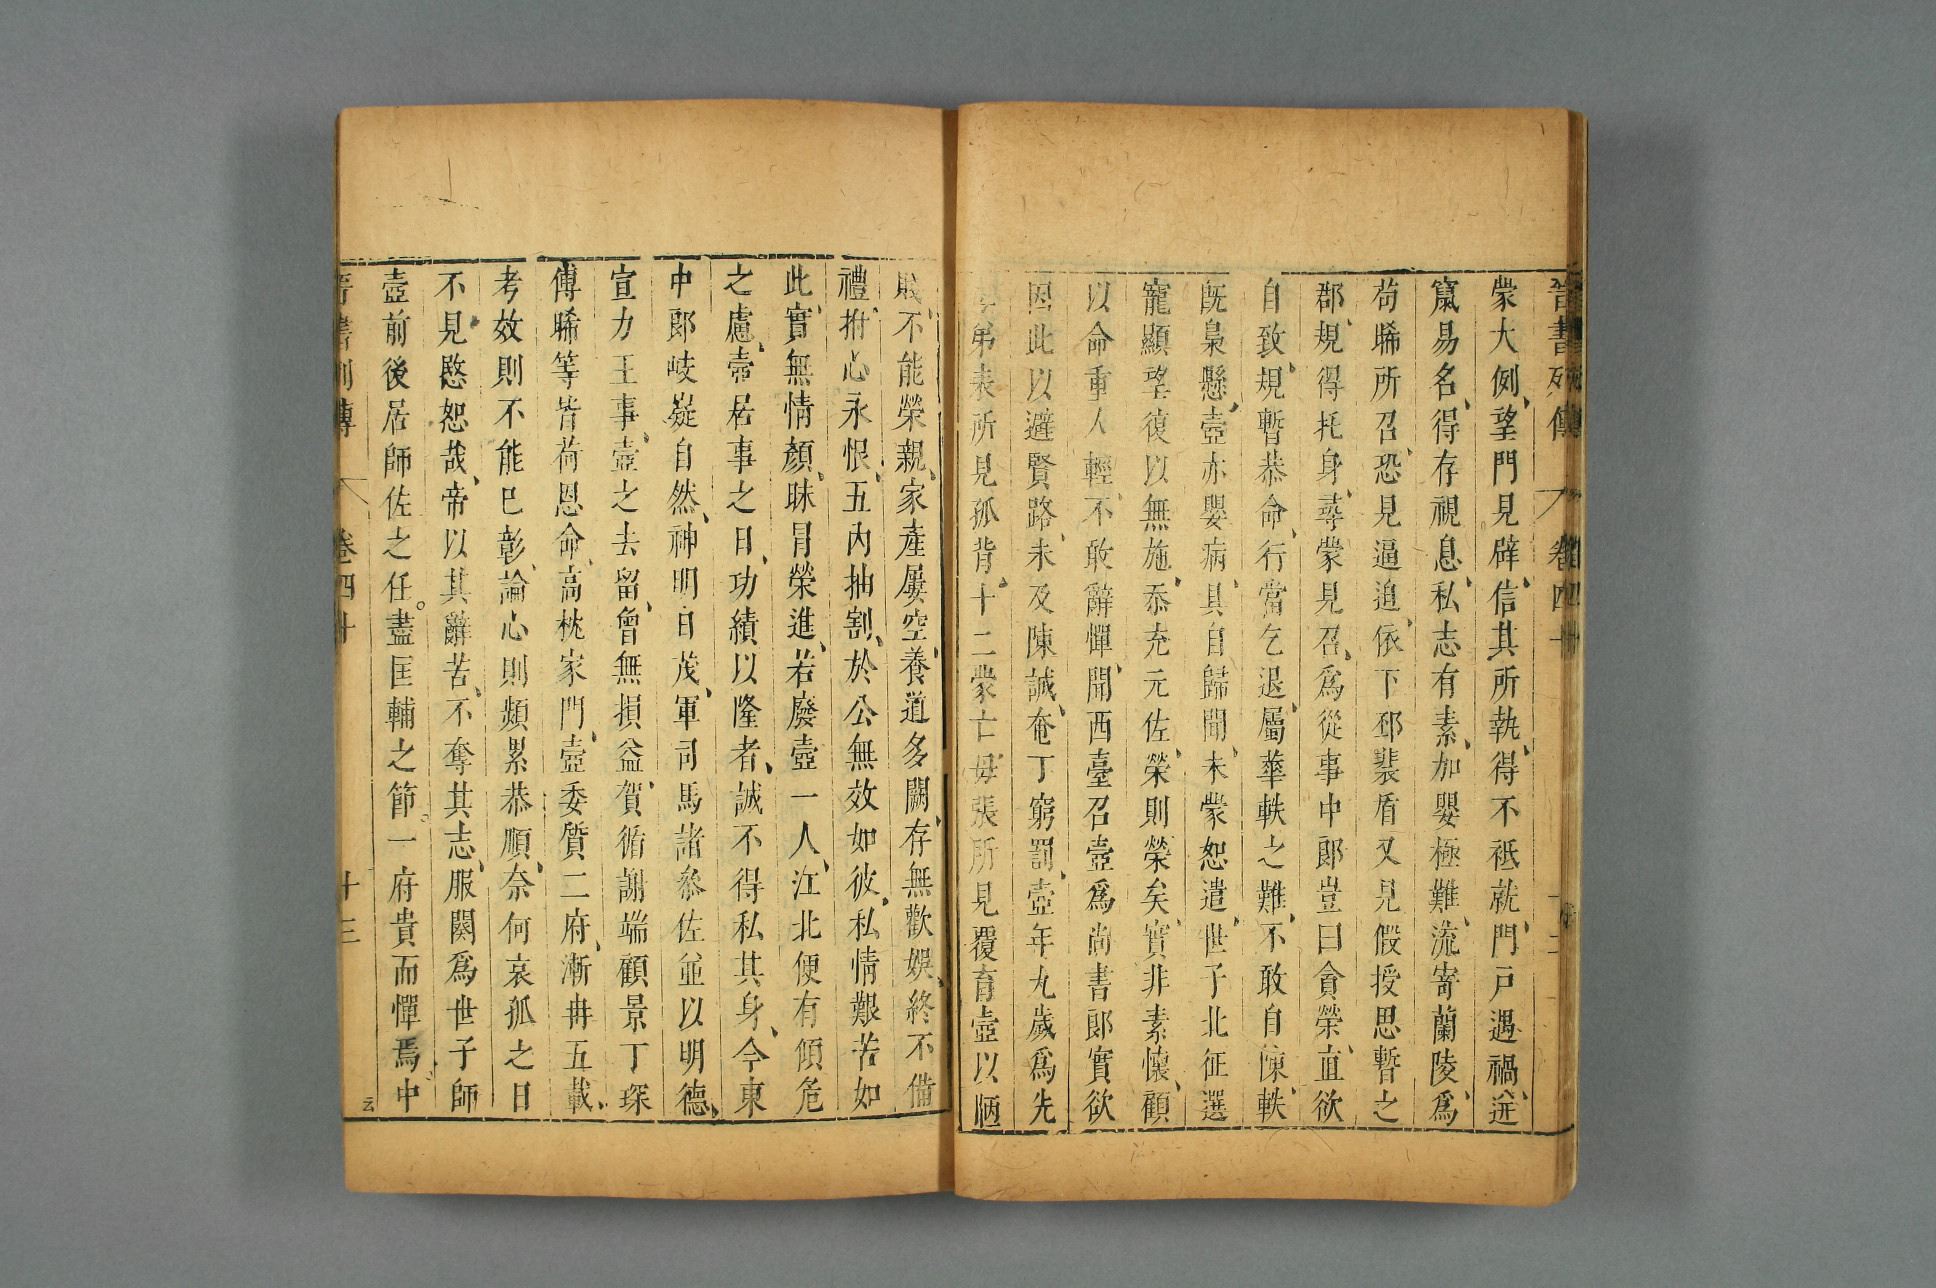 晉書列傳 卷四十
蒙大例、望門見辟、信其所執、得不祗就、門戸遇禍、迸
竄易名、得存視息、私志有素、加嬰極難、流寄蘭陵、爲
苟晞所召、恐見逼迫、依下邳裴盾又見假授思暫之
郡、規得托身、尋蒙見召、爲從事中郎豈曰貪榮、直欲
自致、規暫恭命、行當乞退、屬華軼之難、不敢自陳、軼
旣梟懸、壼亦嬰病、具自歸聞、未蒙恕遣、世子北征選
寵顯望復以無施、忝充元佐、榮則榮矣、實非素懷、顧
以命重人輕、不敢辭憚、聞西臺召壼爲尚書郎實欲
因此以避賢路、未及陳誠、奄丁窮罰、壼年九歲爲先
母弟表所見孤背、十二蒙亡母張所見覆育壼以陋
賤、不能榮親、家產屢空、養道多闕、存無歡娛、終不備
禮、拊心永恨、五内抽割、於公無效如彼、私情艱苦如
此、實無情顏、昧冒榮進、若廢壼一人、江北便有傾危
之慮、壼居事之日、功績以隆者、誠不得私其身、今東
中郎岐嶷自然、神明日茂、軍司馬諸參佐並以明德、
宣力王事、壼之去留、曾無損益、賀循謝端顧景丁琛
傅晞等皆荷恩命、高枕家門、壼委質二府、漸冉五載、
考效則不能已彰、論心則頻累恭順、奈何哀孤之日
不見愍恕哉、帝以其辭苦、不奪其志、服闋爲世子師
壼前後居師佐之任。盡匡輔之節。一府貴而憚焉、中
晉書列傳 卷四十 十三